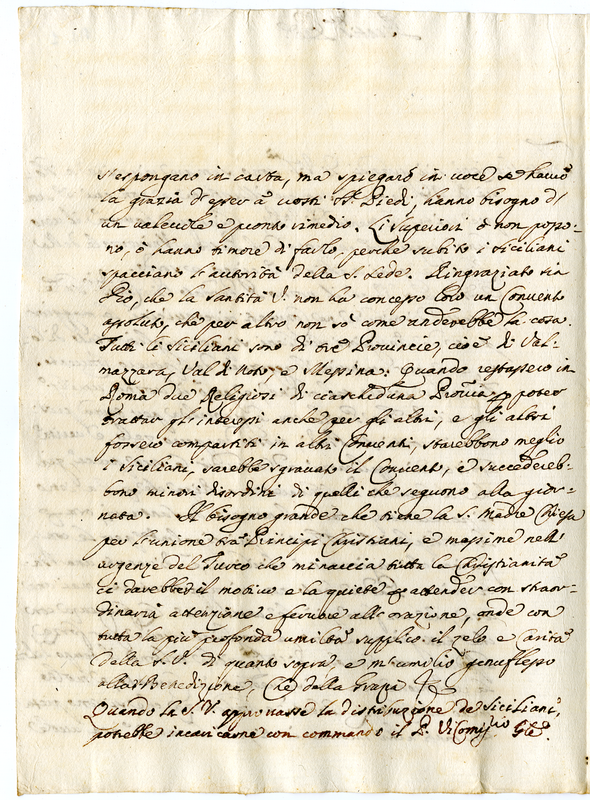 s'espongano in carta, ma spiegarò in voce se havrò
la grazia d'esser à vostri SS. Piedi, hanno bisogno di
un valevole e pronto rimedio. Li Superiori ò non posso-
no, ò hanno timore di farlo, perche subito i Siciliani
spacciano l'autorità della S. Sede. Ringraziato sia
Dio, che la Santità V. non ha concesso loro un Convento
assoluto, che per altro non sò come anderebbe la cosa.
Tutti li Siciliani sono di tre Provincie, cioè di Val-
mazzara, Val di Noto, e Messina: Quando restassero in
Roma due Religiosi di ciascheduna Prov.a p poter
trattar gli interessi anche per gli altri, e gli altri
fossero compartiti in altri Conventi, starebbono meglio
i Siciliani, sarebbe sgravato il Convento, e succedereb-
bono minori disordini di quelli che seguono alla gior-
nata. Il bisogno grande che tiene la S. Madre Chiesa
per l'unione trà Principi Christiani, e massime nell'
urgenze del Turco che minaccia tutta la Christianità
ci darebbe il motivo e la quiete attender con straor-
dinaria attenzione e fervore all'orazione, onde con
tutta la più profonda umiltà supplico il zelo e Carità
della S. V. di quanto sopra, e m'umilio genuflesso
alla Benedizione, Che della Grazia
Quando la S. V. approvasse la distribuzione de Siciliani,
potrebbe incaricarne con commando il P. ViComis.rio Gñle